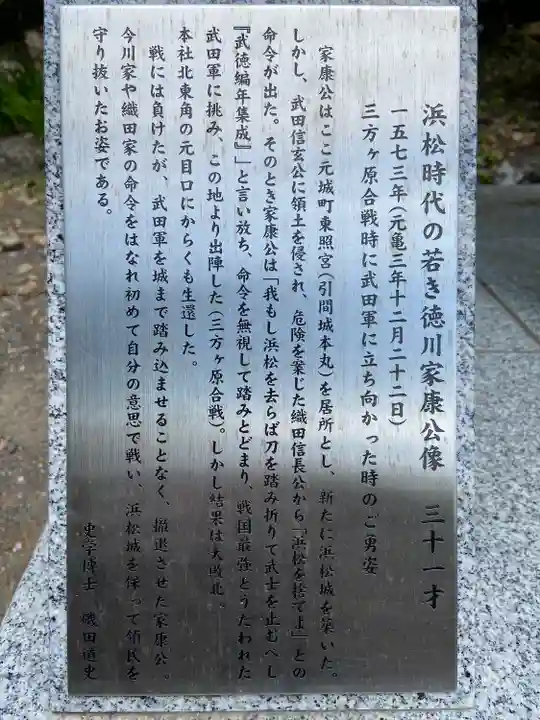 浜松時代の若き徳川家康公像　三十一才
一五七三年(元亀三年十二月二十二日)
三方ヶ原合戦時に武田軍に立ち向かった時のご勇姿
家康公はここ元城町東照宮(引間城本丸)を居所とし、新たに浜松城を築いた。
しかし、武田信玄公に領土を侵され、危険を案じた織田信長公から「浜松を捨てよ」との
命令が出た。そのとき家康公は「我もし浜松を去らば刀を踏み折りて武士を止むへし
『武徳編年集成』」と言い放ち、命令を無視して踏みとどまり、戦国最強とうたわれた
武田軍に挑み、この地より出陣した(三方ヶ原合戦)。しかし結果は大敗北。
本社北東角の元目口にからくも生還した。
戦には負けたが、武田軍を城まで踏み込ませることなく、撤退させた家康公。
今川家や織田家の命令をはなれ初めて自分の意思で戦い、浜松城を保って領民を
守り抜いたお姿である。
史学博士　磯田道史